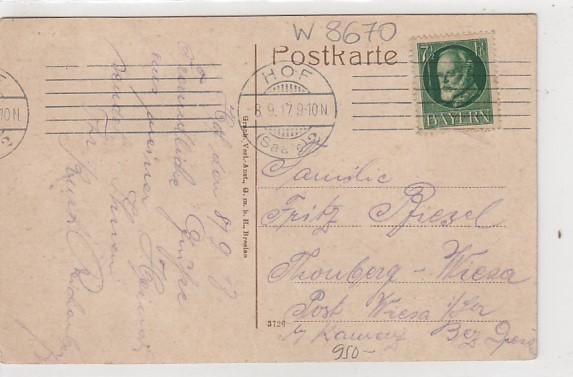 W 8670
Postkarte
7½ 7½
BAYERN
HOF
-8.9.17.9-10N
(Saale) 2
10N
2
Hof den 8/9 17
Freundliche Grüße
aus meiner Heimat
sendet Ihnen
Graph. Verl.-Anst., G. m. b. H., Breslau
Familie
Fritz
Thonberg - Wiesa
Post Wiesa
Kamenz
3724
950-